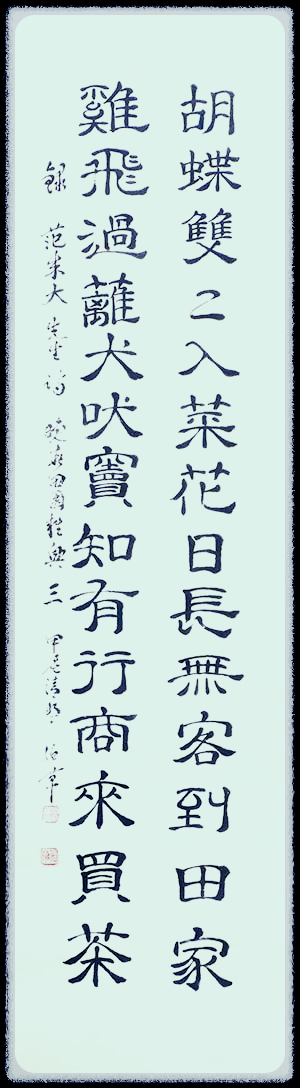 胡蝶雙二入菜花日長無客到田家
雞飛過蘺犬吠竇知有行商來買茶
錄 范成大先生詩 晚春田園雜興 三 甲辰